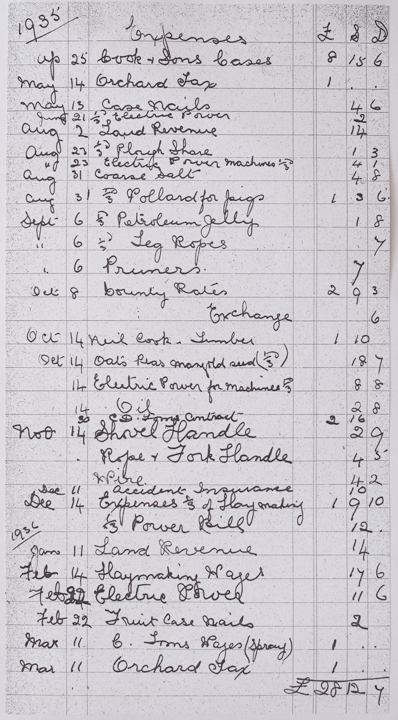 1935
Expenses £ S D
Ap 25 Cook & Sons Cases 8 15 6
May 14 Orchard Tax 1 . .
May 13 Case Nails 4 6
June 21 ⅓ Electric Power 2
Aug 2 Land Revenue 14
Aug 23 ⅓ Plough Share 1 3
" 23 Electric Power machines ⅓ 4 1
Aug 31 Coarse Salt 4 8
Aug 31 Pollard for pigs 1 3 6
Sept 6 ⅓ Petroleum Jelly 1 8
" 6 ⅓ Leg Ropes 7
" 6 Pruners. 7
Oct 8 County Rates 2 9 3
Exchange 6
Oct 14 Neil Cook. Timber 1 10
Oct 14 Oats Peas mangold seed (⅓) 18 7
14 Electric Power for machines 8 8
14 Oil 2 8
30 Toms Contract 2 16
Nov 14 Shovel Handle 2 9
. Rope & Fork Handle 4 5
Wire 4 2
Dec 11 Accident Insurance 10
Dec 14 Expenses ⅓ of Haymaking 1 9 10
⅓ Power Bill 12 .
1936
Jan 11 Land Revenue 14
Feb 14 Haymaking Wages 17 6
Feb 22 Electric Power 11 6
Feb 22 Fruit Case Nails 2
Mar 11 C. Toms Wages (Spray) 1 . .
Mar 11 Orchard Tax 1 . .
£ 28 12 7